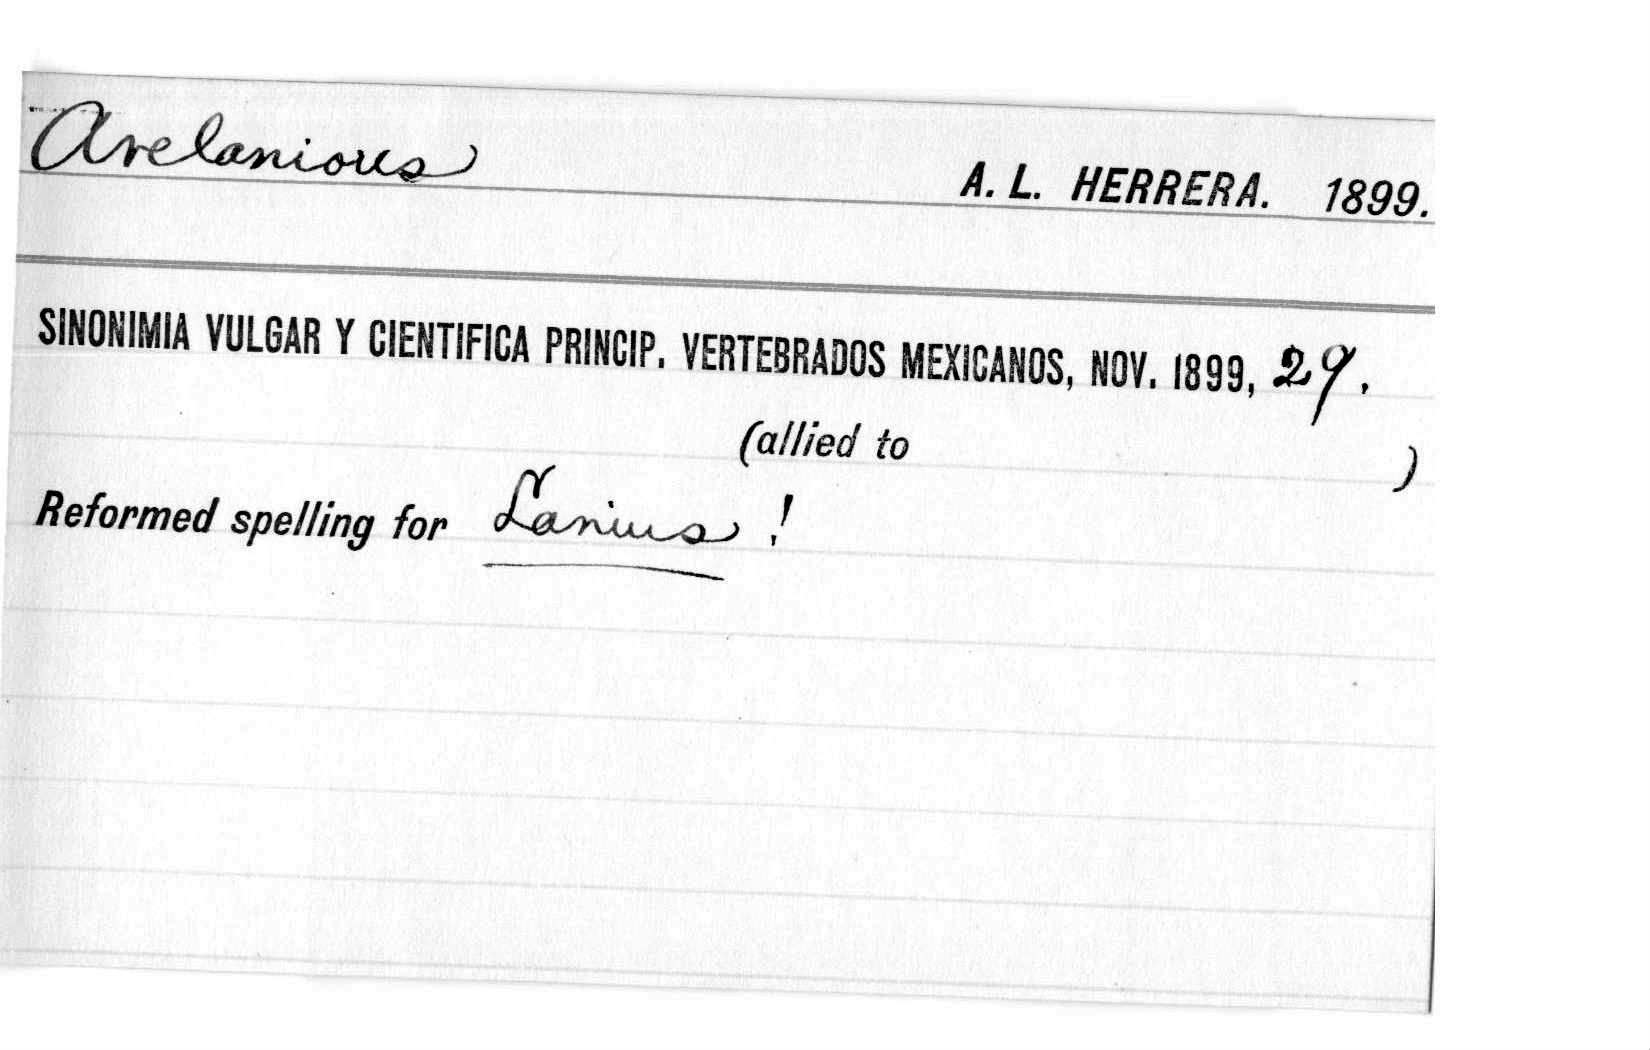 Avelanious
A. L. HERRERA. 1899.
SINONIMIA VULGAR Y CIENTIFICA PRINCIP. VERTEBRADOS MEXICANOS, NOV. 1899, 29.
(allied to )
Reformed spelling for Lanius !